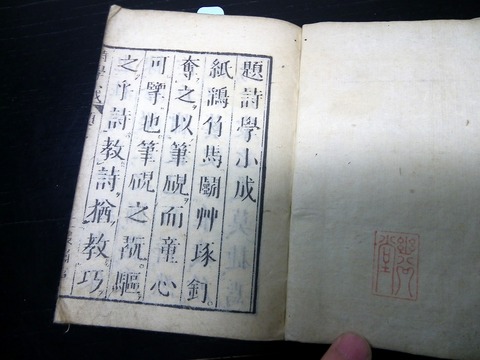 題詩學小成
紙鷂竹馬鬪艸琢釘
奪之以筆硯而童心
可也筆硯之翫驅
之乎詩教詩猶教巧